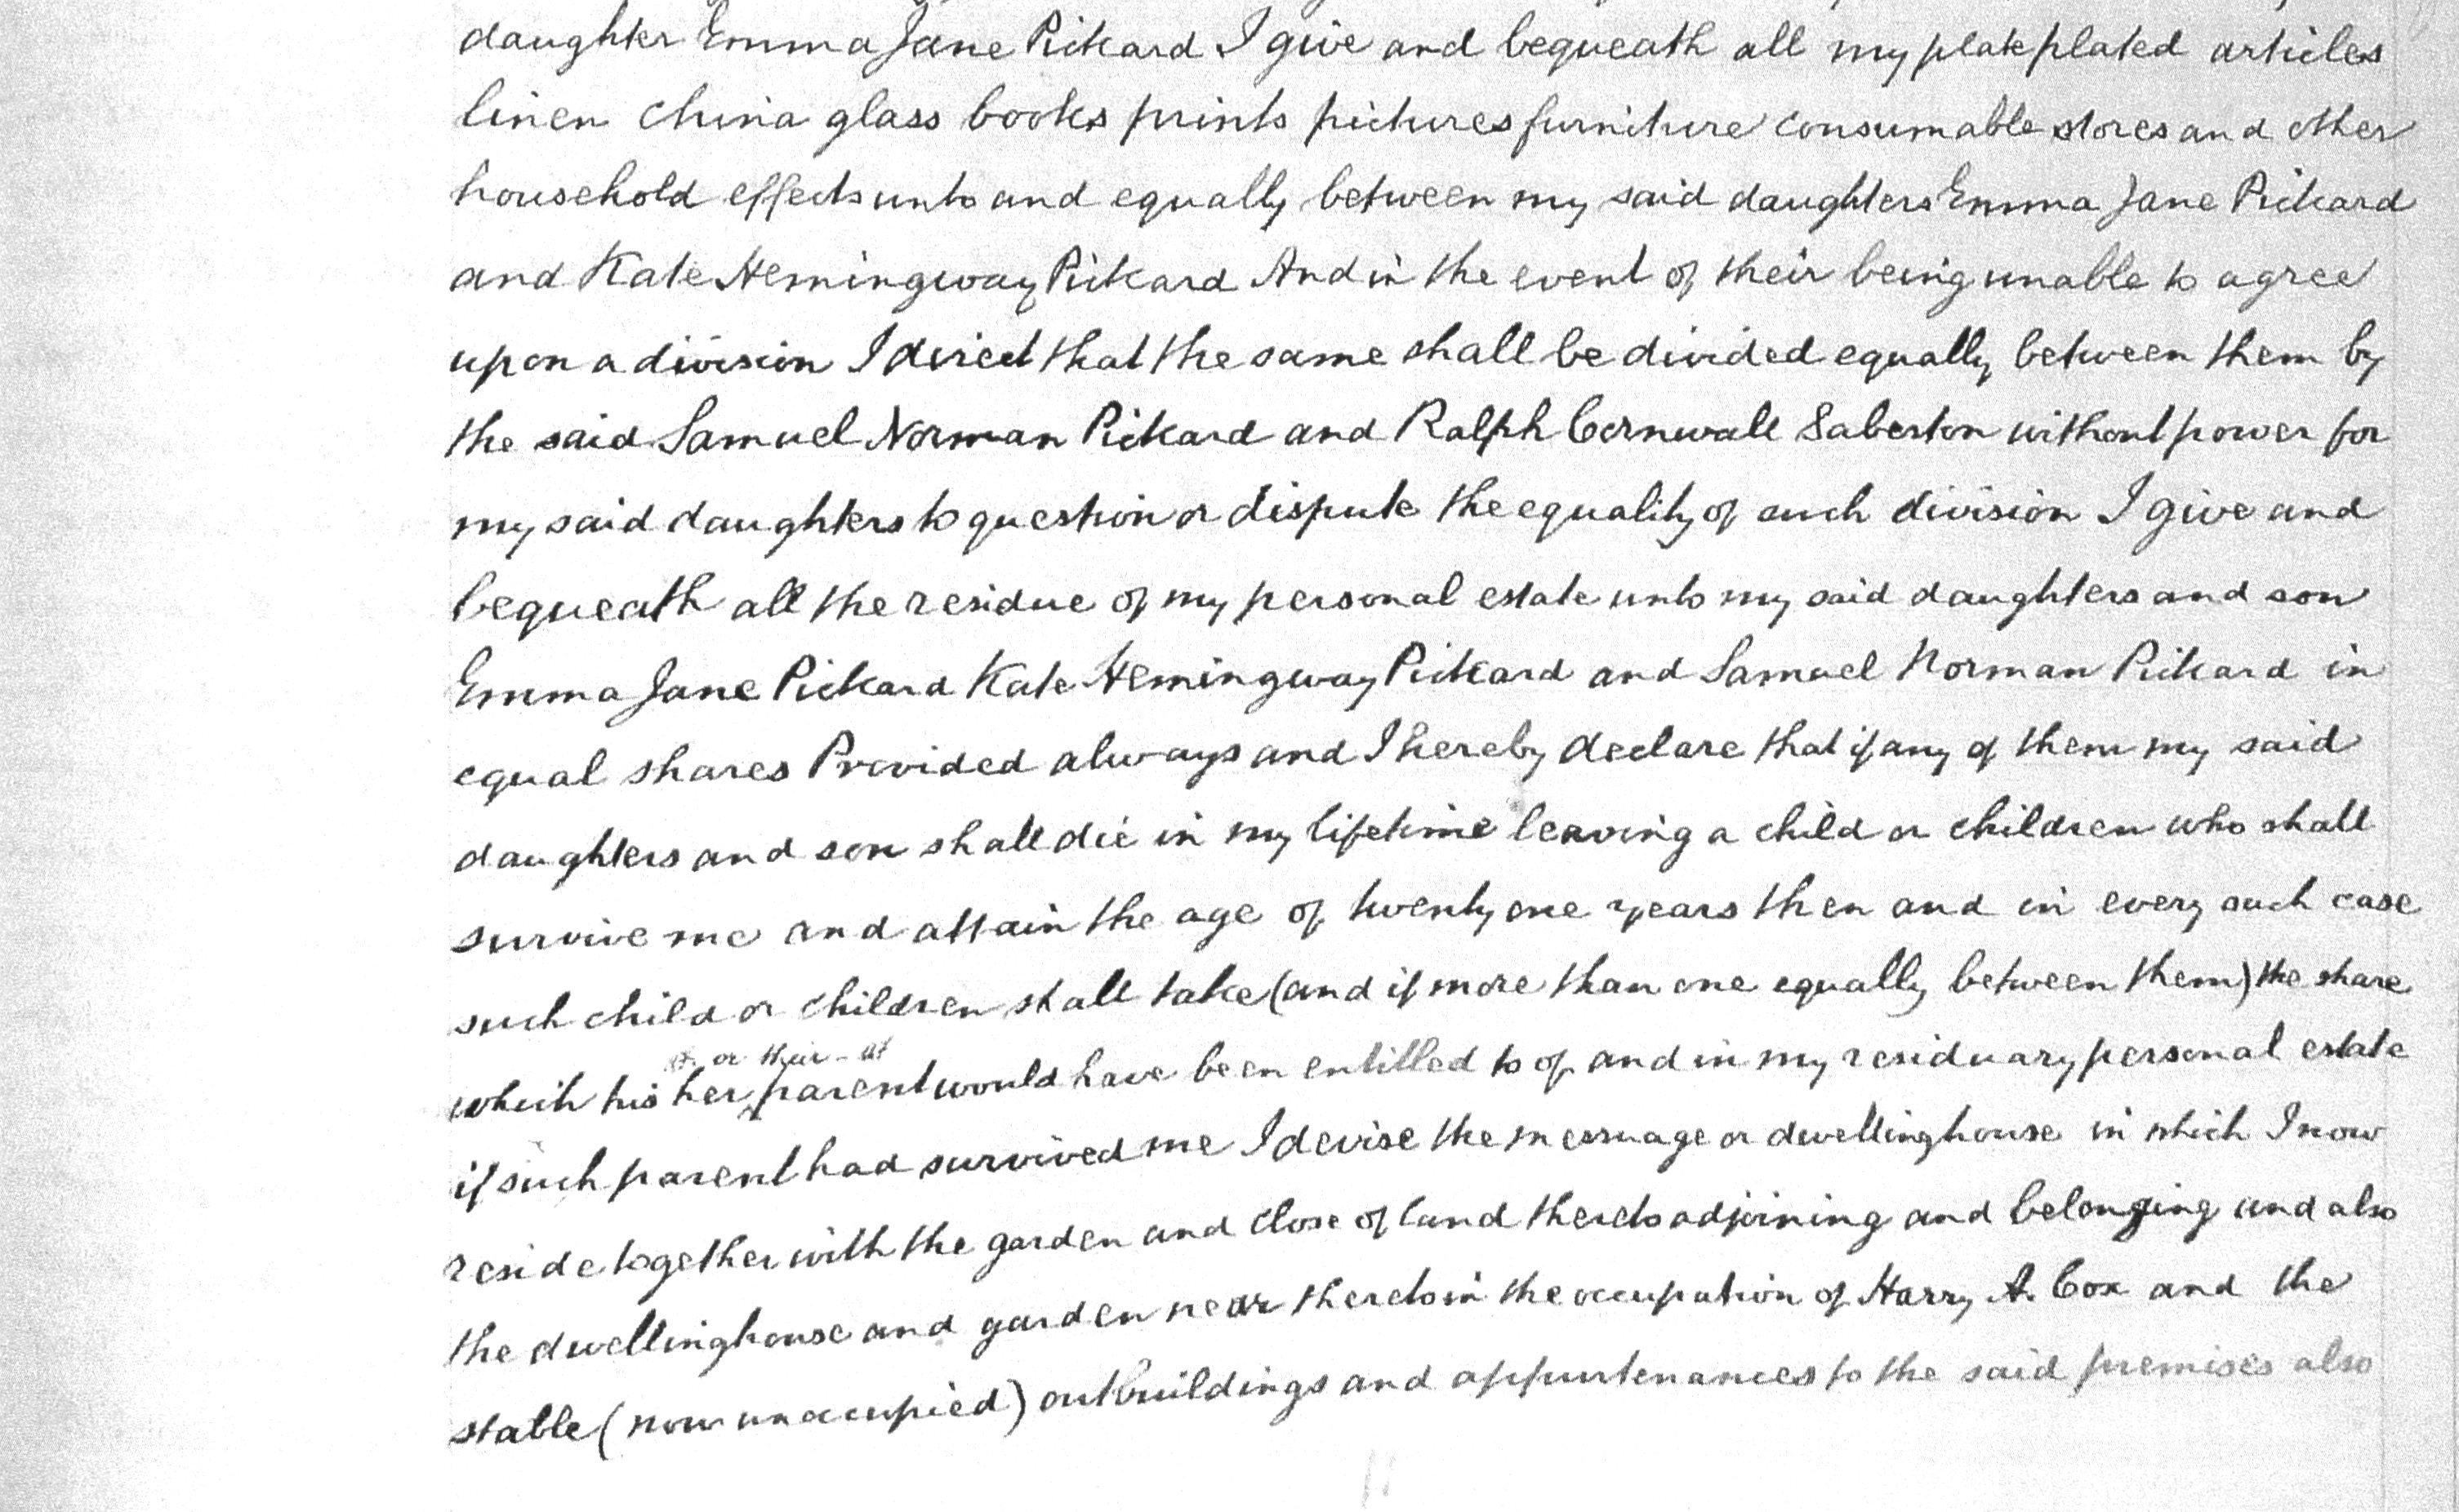 daughter Emma Jane Pickard I give and bequeath all my plate plated articles
linen china glass books prints pictures furniture consumable stores and other
household effects unto and equally between my said daughters Emma Jane Pickard
and Kate Hemingway Pickard And in the event of their being unable to agree
upon a division I direct that the same shall be divided equally between them by
the said Samuel Norman Pickard and Ralph Cornwall Saberton without power for
my said daughters to question or dispute the equality of such division I give and
bequeath all the residue of my personal estate unto my said daughters and son
Emma Jane Pickard Kate Hemingway Pickard and Samuel Norman Pickard in
equal shares Provided always and I hereby declare that if any of them my said
daughters and son shall die in my lifetime leaving a child or children who shall
survive me and attain the age of twenty one years then and in every such case
such child or children shall take (and if more than one equally between them) the share
or their
which his her parent would have been entitled to of and in my residuary personal estate
if such parent had survived me I devise the messuage or dwellinghouse in which I now
reside together with the garden and close of land thereto adjoining and belonging and also
the dwellinghouse and garden near thereto in the occupation of Harry A. Cox and the
stable (now unoccupied) outbuildings and appurtenances to the said premises also